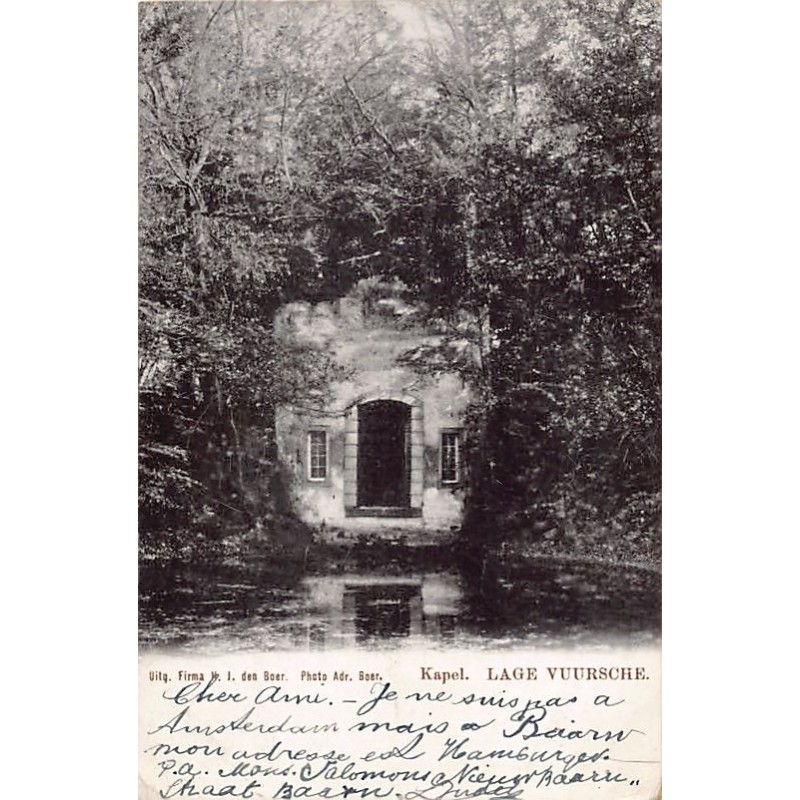 Uitg. Firma N. J. den Boer. Photo Adr. Boer. Kapel. LAGE VUURSCHE.
Cher Ami. - Je ne suis pas a
Amsterdam mais a Baarn
mon adresse est Hamburger
p.a. Mons. Salomons Nieuw Baarn„
Straat Baarn.